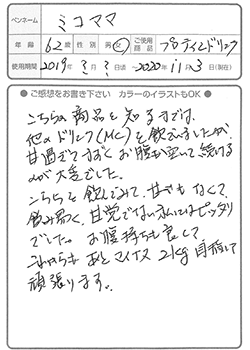 ペンネーム ミコママ
年齢 62歳 性別 男・女 ご使用商品 プロテインドリンク
使用期間 2019年 ?月 ?日頃 ~2020年 11月 3日(現在)
● ご感想をお書き下さい カラーのイラストもOK ●
こちらの商品を知るまでは、
他のドリンク(MC)を飲んでいましたが、
甘過ぎてすぐお腹が空いて続ける
のが大変でした。
こちらを飲んでみて、甘でもなくて、
飲み易く、甘党でない私にはピッタリ
でした。お腹持ちも良くて
これからもあとマイナス2kg目指して
頑張ります。